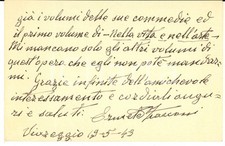 già i volumi delle sue commedie ed
il primo volume di "Nella vita e nell'arte"
Mi mancano solo gli altri volumi di
quell'opera che egli non può mandar-
mi.
Grazie infinite dell'amichevole
interessamento e cordiali augu-
ri e saluti.
Viareggio 13-5-43